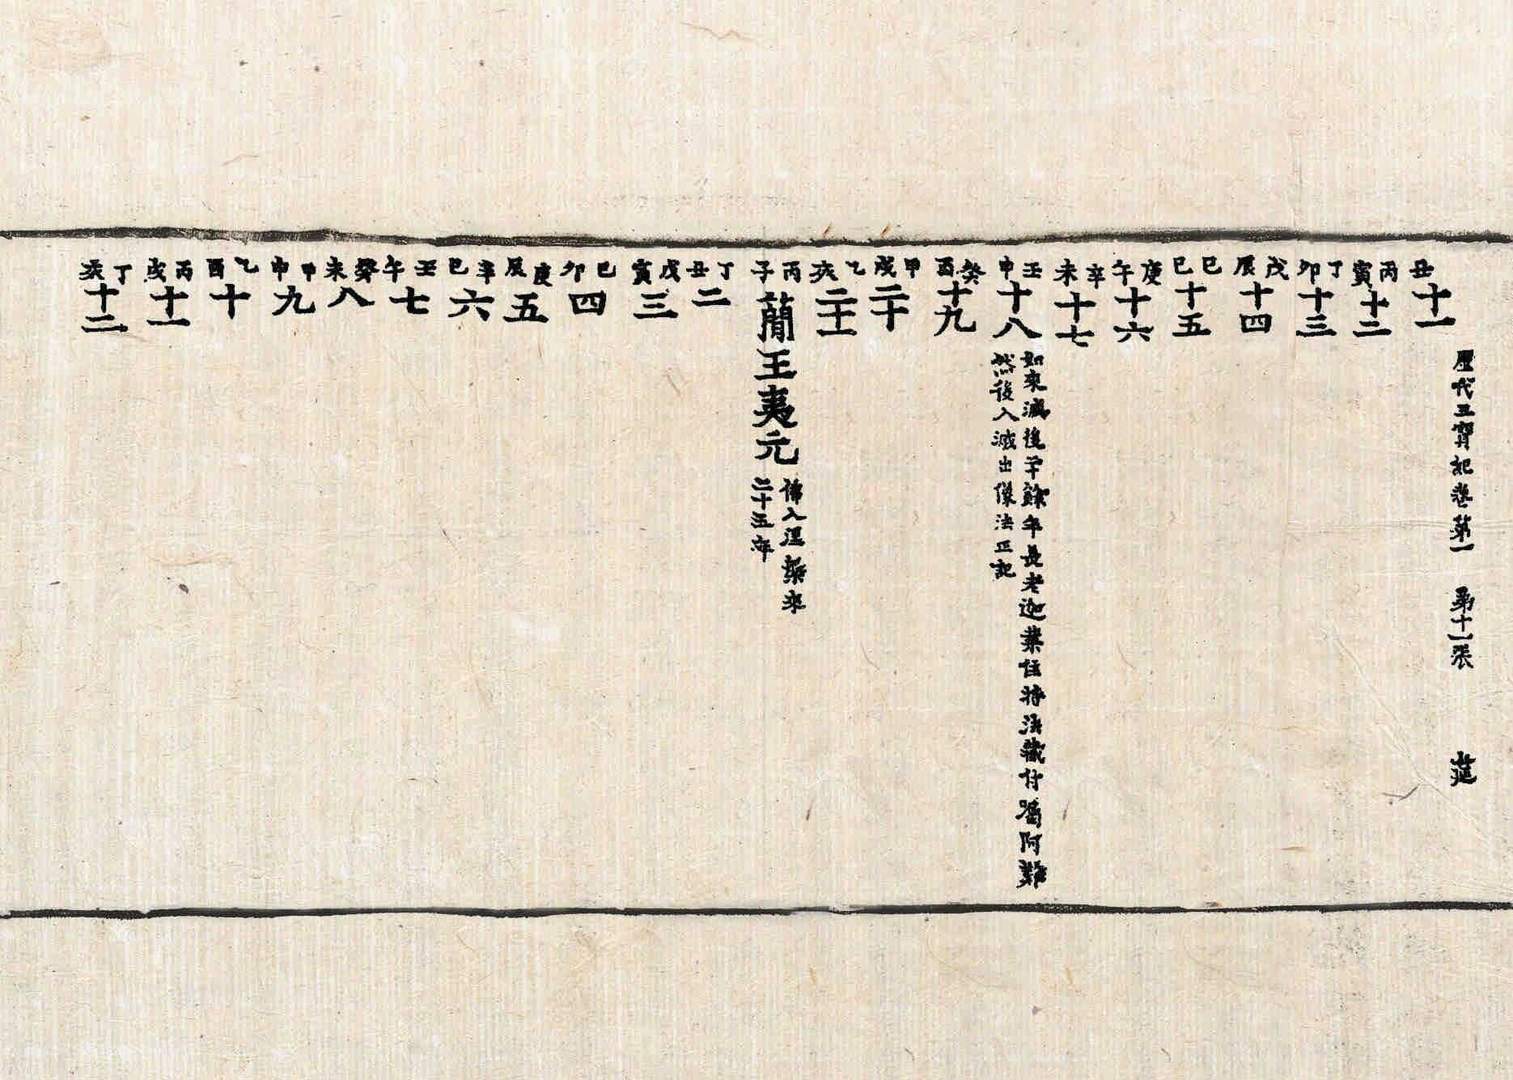 歷代三寶紀卷第一 第十一張 筵
丑十一
丙寅十二
丁卯十三
戊辰十四
巳巳十五
庚午十六
辛未十七
壬申十八 如來滅後二十餘年長老迦葉住持法藏付囑阿難
然後入滅出像法正記
癸酉十九
甲戌二十
乙亥二十一
丙子簡王夷元 佛入涅槃來
二十五年
丁丑二
戊寅三
巳卯四
庚辰五
辛巳六
壬午七
癸未八
甲申九
乙酉十
丙戌十一
丁亥十二